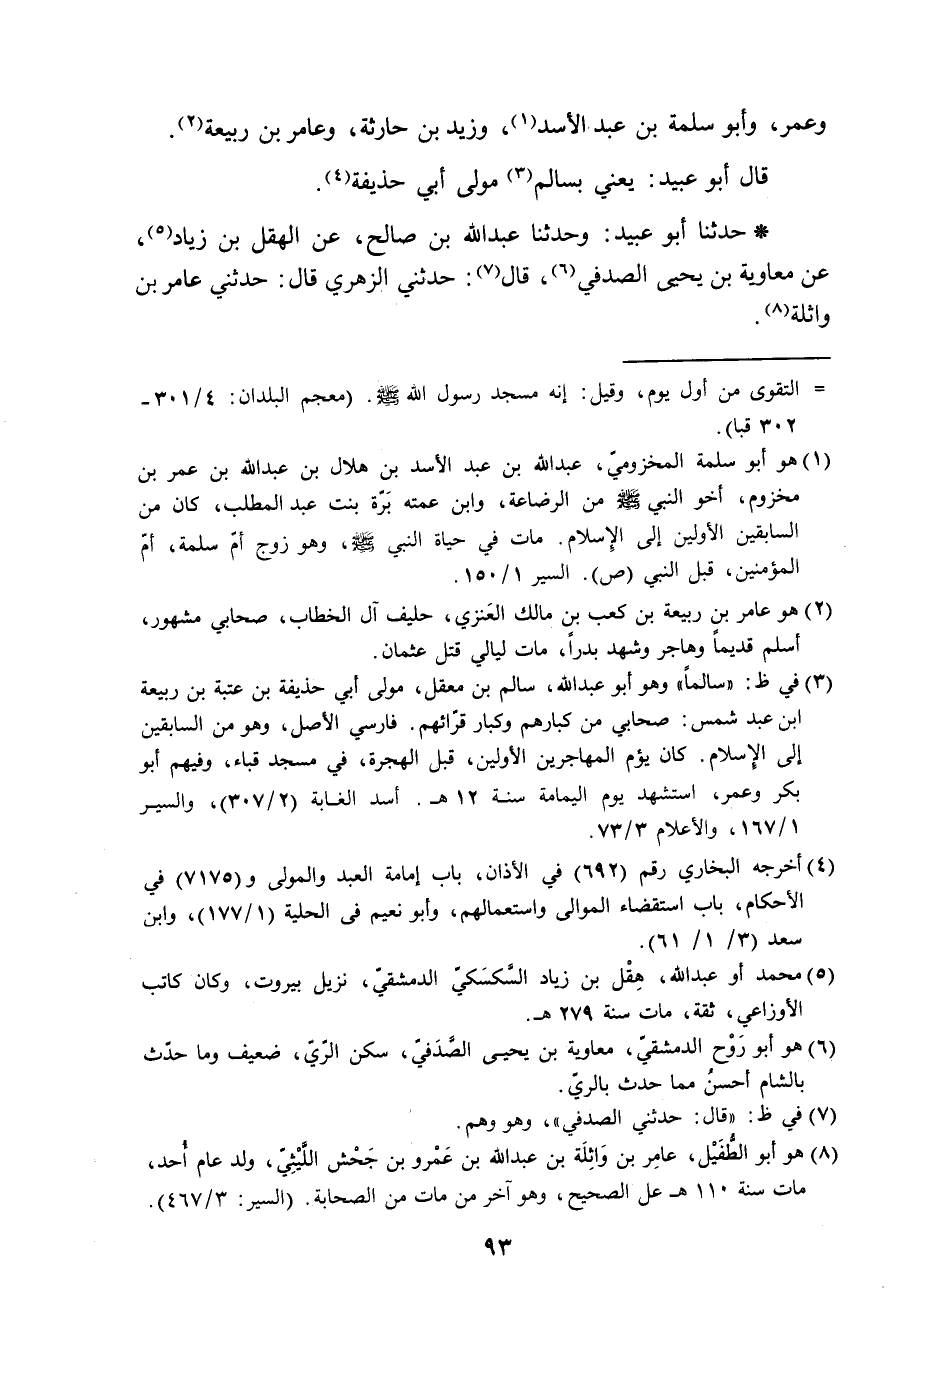 وعمر، وأبو سلمة بن عبد الأسد(١)، وزيد بن حارثة، وعامر بن ربيعة(٢).
قال أبو عبيد: يعني بسالم(٣) مولى أبي حذيفة(٤).
* حدثنا أبو عبيد: وحدثنا عبدالله بن صالح، عن الهقل بن زياد(٥)،
عن معاوية بن يحيى الصدفي(٦)، قال(٧): حدثني الزهري قال: حدثني عامر بن
واثلة(٨).
= التقوى من أول يوم، وقيل: إنه مسجد رسول الله ﷺ. (معجم البلدان: ٣٠١/٤ -
٣٠٢ قبا).
(١) هو أبو سلمة المخزوميّ، عبدالله بن عبد الأسد بن هلال بن عبدالله بن عمر بن
مخزوم، أخو النبي ﷺ من الرضاعة، وابن عمته بَرّة بنت عبد المطلب، كان من
السابقين الأولين إلى الإسلام. مات في حياة النبي ﷺ، وهو زوج أمّ سلمة، أمّ
المؤمنين، قبل النبي (ص). السير ١٥٠/١.
(٢) هو عامر بن ربيعة بن كعب بن مالك العَنزي، حليف آل الخطاب، صحابي مشهور،
أسلم قديماً وهاجر وشهد بدراً، مات ليالي قتل عثمان.
(٣) في ظ: «سالماً» وهو أبو عبدالله، سالم بن معقل، مولى أبي حذيفة بن عتبة بن ربيعة
ابن عبد شمس: صحابي من كبارهم وكبار قرّائهم. فارسي الأصل، وهو من السابقين
إلى الإسلام. كان يؤم المهاجرين الأولين، قبل الهجرة، في مسجد قباء، وفيهم أبو
بكر وعمر، استشهد يوم اليمامة سنة ١٢ هـ. أسد الغابة (٣٠٧/٢)، والسير
١٦٧/١، والأعلام ٧٣/٣.
(٤) أخرجه البخاري رقم (٦٩٢) في الأذان، باب إمامة العبد والمولى و(٧١٧٥) في
الأحكام، باب استقضاء الموالى واستعمالهم، وأبو نعيم فى الحلية (١٧٧/١)، وابن
سعد (٣/ ١/ ٦١).
(٥) محمد أو عبدالله، هِقْل بن زياد السَّكسَكيّ الدمشقيّ، نزيل بيروت، وكان كاتب
الأوزاعي، ثقة، مات سنة ٢٧٩ هـ.
(٦) هو أبو رَوْح الدمشقيّ، معاوية بن يحيى الصَّدَفيّ، سكن الرّيّ، ضعيف وما حدّث
بالشام أحسنُ مما حدث بالريّ.
(٧) في ظ: «قال: حدثني الصدفي»، وهو وهم.
(٨) هو أبو الطُّفَيْل، عامِر بن وَاثِلَة بن عبدالله بن عَمْرو بن جَحْش اللَّيْثِيّ، ولد عام أُحد،
مات سنة ١١٠ هـ عل الصحيح، وهو آخر من مات من الصحابة. (السير: ٤٦٧/٣).
٩٣